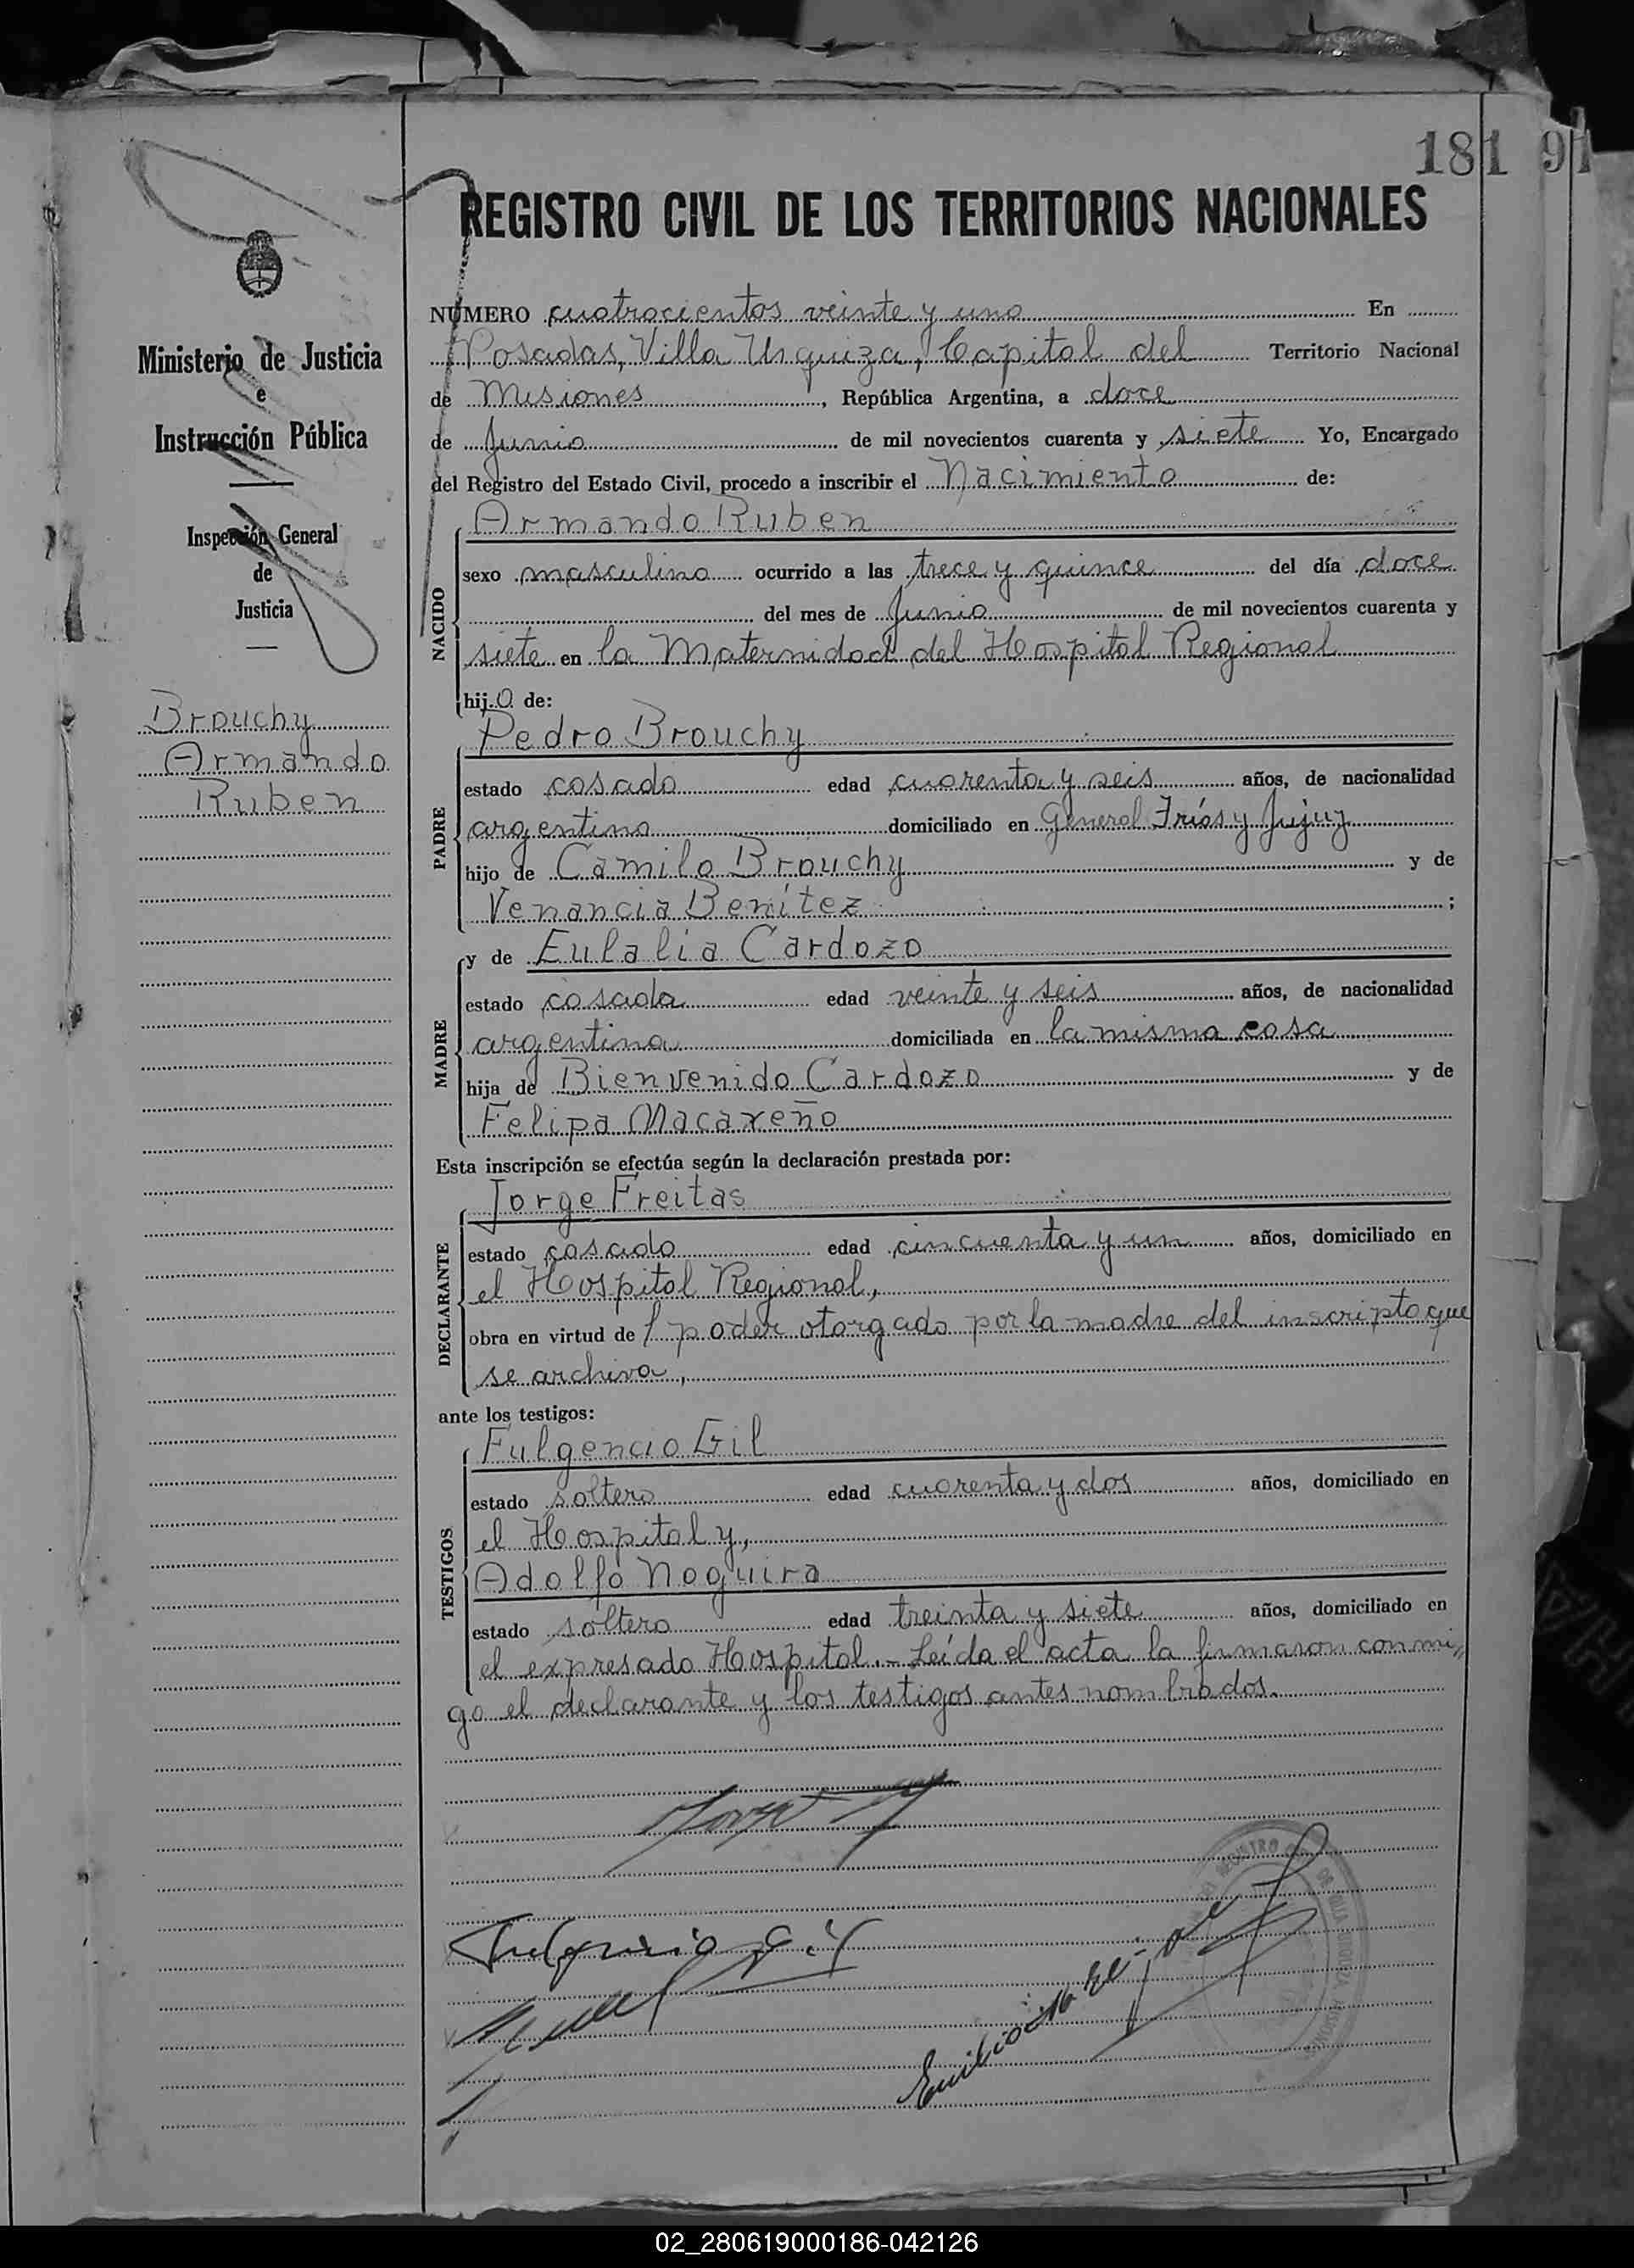 181 91
REGISTRO CIVIL DE LOS TERRITORIOS NACIONALES
Ministerio de Justicia
e
Instrucción Pública
Inspección General
de
Justicia
Brouchy
Armando
Ruben
NÚMERO cuatrocientos veinte y uno En
Posadas, Villa Urquiza, Capital del Territorio Nacional
de Misiones, República Argentina, a doce
de Junio de mil novecientos cuarenta y siete Yo, Encargado
del Registro del Estado Civil, procedo a inscribir el Nacimiento de:
NACIDO
Armando Ruben
sexo masculino ocurrido a las trece y quince del día doce
del mes de Junio de mil novecientos cuarenta y
siete en la Maternidad del Hospital Regional
hijo de:
PADRE
Pedro Brouchy
estado casado edad cuarenta y seis años, de nacionalidad
argentino domiciliado en General Frías y Jujuy
hijo de Camilo Brouchy y de
Venancia Benítez ;
MADRE
y de Eulalia Cardozo
estado casada edad veinte y seis años, de nacionalidad
argentina domiciliada en la misma casa
hija de Bienvenido Cardozo y de
Felipa Macareño
Esta inscripción se efectúa según la declaración prestada por:
DECLARANTE
Jorge Freitas
estado casado edad cincuenta y un años, domiciliado en
el Hospital Regional,
obra en virtud del poder otorgado por la madre del inscripto que
se archiva,
ante los testigos:
TESTIGOS
Fulgencio Gil
estado soltero edad cuarenta y dos años, domiciliado en
el Hospital y,
Adolfo Noguira
estado soltero edad treinta y siete años, domiciliado en
el expresado Hospital.- Leída el acta la firmaron conmi"
go el declarante y los testigos antes nombrados.
Fulgencio Gil
02_280619000186-042126